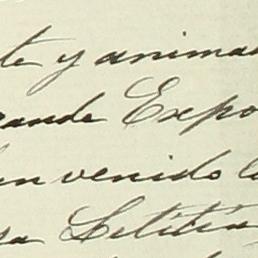 te y anima
ande Expo
en venido la
sa Letitia